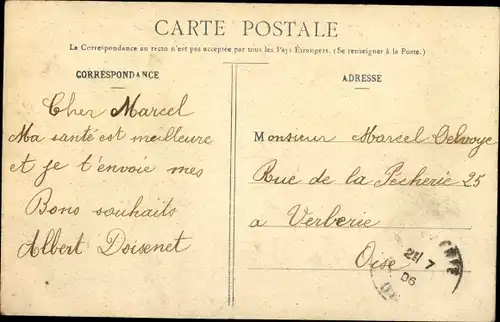 CARTE POSTALE
La Correspondance au recto n'est pas acceptée par tous les Pays Étrangers. (Se renseigner à la Poste.)
CORRESPONDANCE
Cher Marcel
Ma santé est meilleure
et je t'envoie mes
Bons souhaits
Albert Doisenet
ADRESSE
Monsieur Marcel Delvoye
Rue de la Pêcherie 25
a Verberie
Oise
7
06